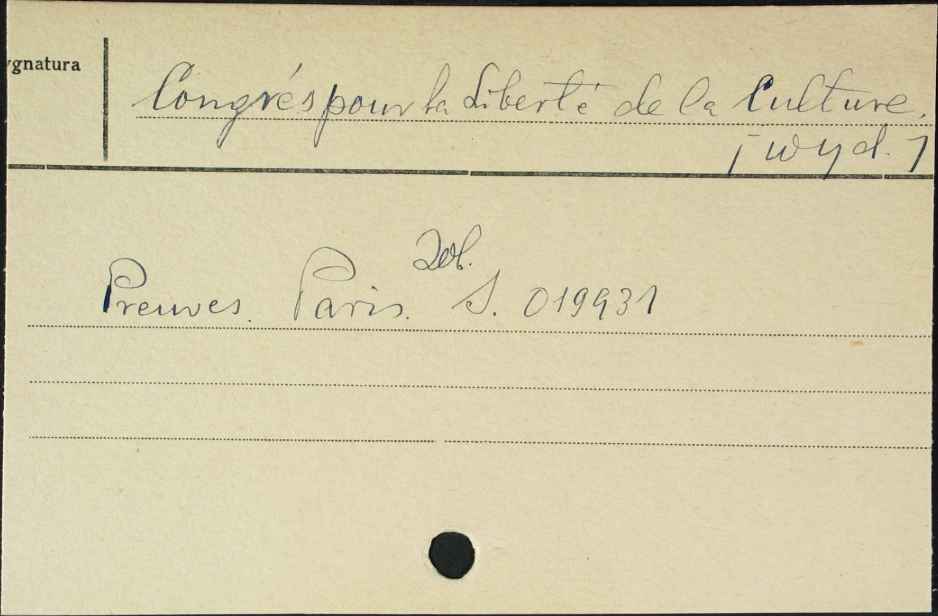 ygnatura
Congrés pour la Liberté de la Culture.
[wyd.]
Zob.
Preuves. Paris. S. 019931